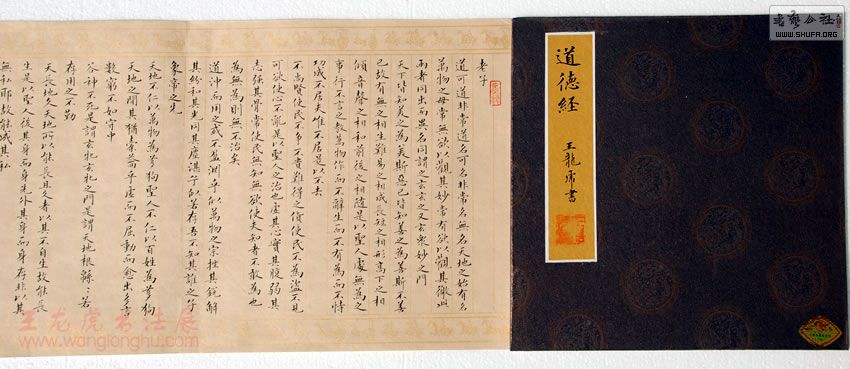 書藝公社
WWW.SHUFA.ORG
道德經
王龍虎書
老子
道可道非常道名可名非常名無名天地之始有名
萬物之母常無欲以觀其妙常有欲以觀其徼此
兩者同出而異名同謂之玄玄之又玄衆妙之門
天下皆知美之為美斯惡已皆知善之為善斯不善
已故有無之相生難易之相成長短之相形高下之相
傾音聲之相和前後之相隨是以聖人處無為之
事行不言之教萬物作而不辭生而不有為而不恃
功成不居夫唯不居是以不去
不尚賢使民不爭不貴難得之貨使民不為盜不見
可欲使心不亂是以聖人之治也虛其心實其腹弱其
志強其骨常使民無知無欲使夫知者不敢為也
為無為則無不治矣
道沖而用之或不盈淵乎似萬物之宗挫其銳解
其紛和其光同其塵湛乎似若存吾不知其誰之子
象帝之先
天地不仁以萬物為芻狗聖人不仁以百姓為芻狗
天地之間其猶橐籥乎虛而不屈動而愈出多言
數窮不如守中
谷神不死是謂玄牝玄牝之門是謂天地根綿綿若
存用之不勤
天長地久天地所以能長且久者以其不自生故能長
生是以聖人後其身而身先外其身而身存非以其
無私耶故能成其私
王龙虎书法展
www.wanglonghu.com